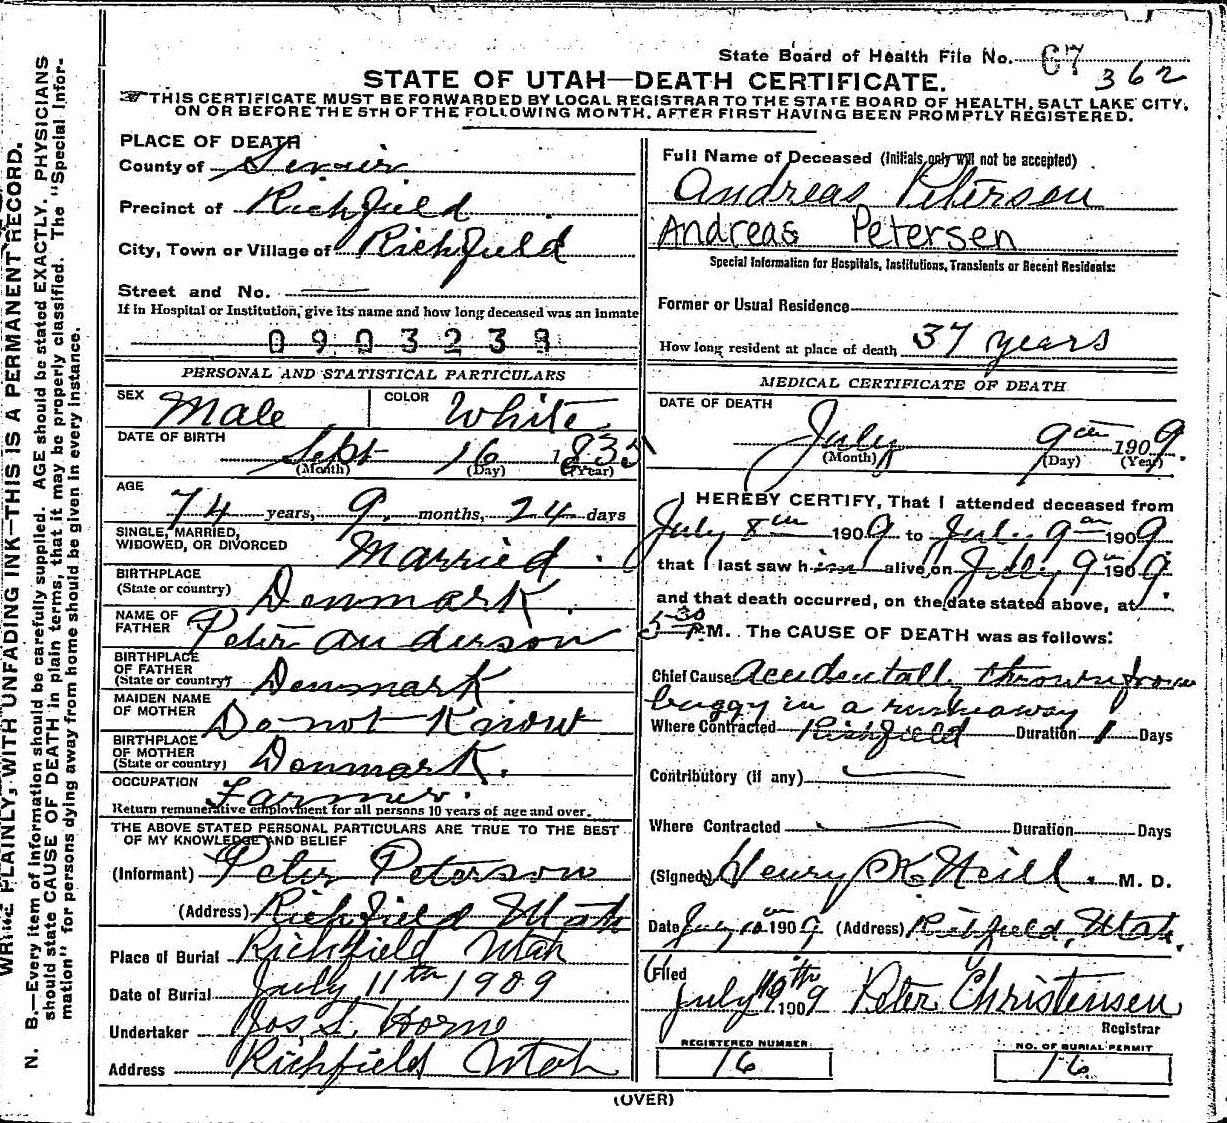 State Board of Health File No. 67
362
STATE OF UTAH—DEATH CERTIFICATE.
THIS CERTIFICATE MUST BE FORWARDED BY LOCAL REGISTRAR TO THE STATE BOARD OF HEALTH, SALT LAKE CITY,
ON OR BEFORE THE 5TH OF THE FOLLOWING MONTH, AFTER FIRST HAVING BEEN PROMPTLY REGISTERED.
WRITE PLAINLY, WITH UNFADING INK—THIS IS A PERMANENT RECORD.
N. B.—Every item of information should be carefully supplied. AGE should be stated EXACTLY. PHYSICIANS
should state CAUSE OF DEATH in plain terms, that it may be properly classified. The "Special Infor-
mation" for persons dying away from home should be given in every instance.
PLACE OF DEATH
County of Sevier
Precinct of Richfield
City, Town or Village of Richfield
Street and No.
If in Hospital or Institution, give its name and how long deceased was an inmate
0903238
PERSONAL AND STATISTICAL PARTICULARS
SEX Male COLOR White
DATE OF BIRTH
Sept 16 1835
(Month) (Day) (Year)
AGE
74 years, 9 months, 24 days
SINGLE, MARRIED,
WIDOWED, OR DIVORCED Married
BIRTHPLACE
(State or country) Denmark.
NAME OF
FATHER Peter Anderson
BIRTHPLACE
OF FATHER
(State or country) Denmark
MAIDEN NAME
OF MOTHER Do not Know
BIRTHPLACE
OF MOTHER
(State or country) Denmark.
OCCUPATION Farmer.
Return remunerative employment for all persons 10 years of age and over.
THE ABOVE STATED PERSONAL PARTICULARS ARE TRUE TO THE BEST
OF MY KNOWLEDGE AND BELIEF
(Informant) Peter Peterson
(Address) Richfield Utah
Place of Burial Richfield Utah
Date of Burial July 11th 1909
Undertaker Jos. T. Horne
Address Richfield Utah
Full Name of Deceased (Initials only will not be accepted)
Andreas Petersen
Andreas Petersen
Special Information for Hospitals, Institutions, Transients or Recent Residents:
Former or Usual Residence
How long resident at place of death 37 years
MEDICAL CERTIFICATE OF DEATH
DATE OF DEATH
July 9th 1909.
(Month) (Day) (Year)
I HEREBY CERTIFY, That I attended deceased from
July 8th 1909 to July 9th 1909
that I last saw him alive on July 9th 1909.
and that death occurred, on the date stated above, at
5-30 P.M. The CAUSE OF DEATH was as follows:
Chief Cause Accidentall thrown from
buggy in a runaway
Where Contracted Richfield Duration 1 Days
Contributory (if any)
Where Contracted Duration Days
(Signed) Henry K. Neill. M. D.
Date July 10th 1909 (Address) Richfield, Utah.
Filed
July 10th 1909 Peter Christensen
Registrar
REGISTERED NUMBER NO. OF BURIAL PERMIT
16 16
(OVER)